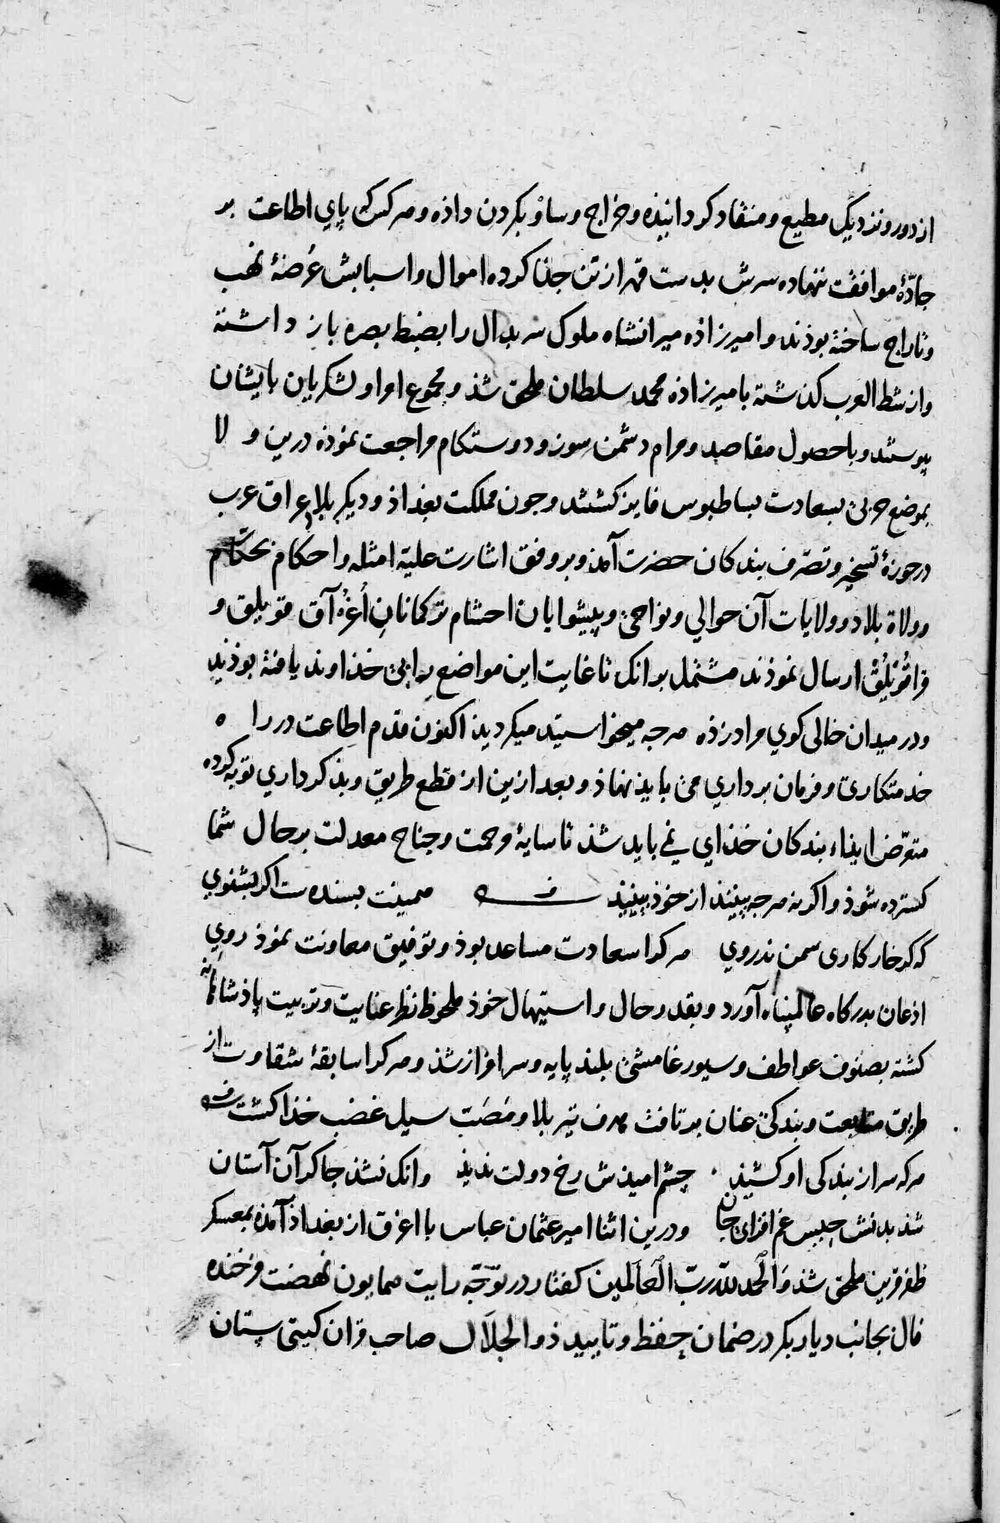 از دور و نزدیک مطیع و منقاد کردانیذه و خراج و ساو بکردن داذه و هر کس که پای اطاعت بر
جادّهٔ موافقت ننهاده سرش بدست قهر از تن جذا کرده اموال و اسبابش عُرضهٔ نهب
و تاراج ساخته بوذند و امیرزاذه میرانشاه ملوک سربدال را بضبط بصره باز داشته
و از شط العرب کذشته بامیرزاذه محمد سلطان ملحق شذ و مجموع امرا و لشکریان بایشان
پیوستند و با حصول مقاصد و مرام دشمن سوز و دوستکام مراجعت نموذه درین و لا
بموضع حربی بسعادت بساطبوس فایز کشتند و جون مملکت بغداذ و دیکر بلاد عراق عرب
در حوزهٔ تسخیر و تصرّف بندکان حضرت آمذ و بر وفق اشارت علیّه امثله و احکام بحکّام
و ولاة بلاد و ولایات آن حوالی و نواحی و پیشوایان احشام ترکمانان اُغرهٔ آق قویلق و
قراقُویلُق ارسال نموذند مشتمل بر انک تا غایت این مواضع را بی خذاوند یافته بوذید
و در میدان خالی کوی مراد زذه هر جه میخواستید میکردید اکنون قدم اطاعت در را ه
خدمتکاری و فرمان برداری می بایذ نهاذ و بعد ازین از قطع طریق و بذ کرداری توبه کرده
متعرّض ایذاء بندکان خذای نمی باید شذ تا سایهٔ مرحمت و جناح معدلت بر حال شما
کسترده شوذ و اکر نه هر جه بینند از خوذ بینند همینت بسنده ست اکر بشنوی
که کر خار کاری سمن ندروی هر کرا سعادت مساعد بوذ و توفیق معاونت نموذ روی
اذعان بدرکاه عالمپناه آورد و بقدر حال و استیهال خوذ ملحوظ نظر عنایت و تربیت پاذشاهانه
کشته بصنوف عواطف و سیورغامشی بلند پایه و سرافراز شذ و هر کرا سابقهٔ شقاوت از
طریق متابعت و بندکی عنان بر تافت هدف تیر بلا و مَصَبّ سیل غضب خذا کشت
هر که سر از بندکی او کشید جشم امیذش رخ دولت ندید وانک نشذ جاکر آن آستان
شذ بدنش حبس غم افزای جان و درین اثنا امیر عثمان عباس با اغرق از بغداذ آمذه بمعسکر
ظفر قرین ملحق شذ وَالحمد لله ربّ العالمین کفتار در توجّه رایت همایون نهضت فرخنده
فال بجانب دیار بکر در ضمان حفظ و تایید ذوالجلال صاحب قران کیتی ستان